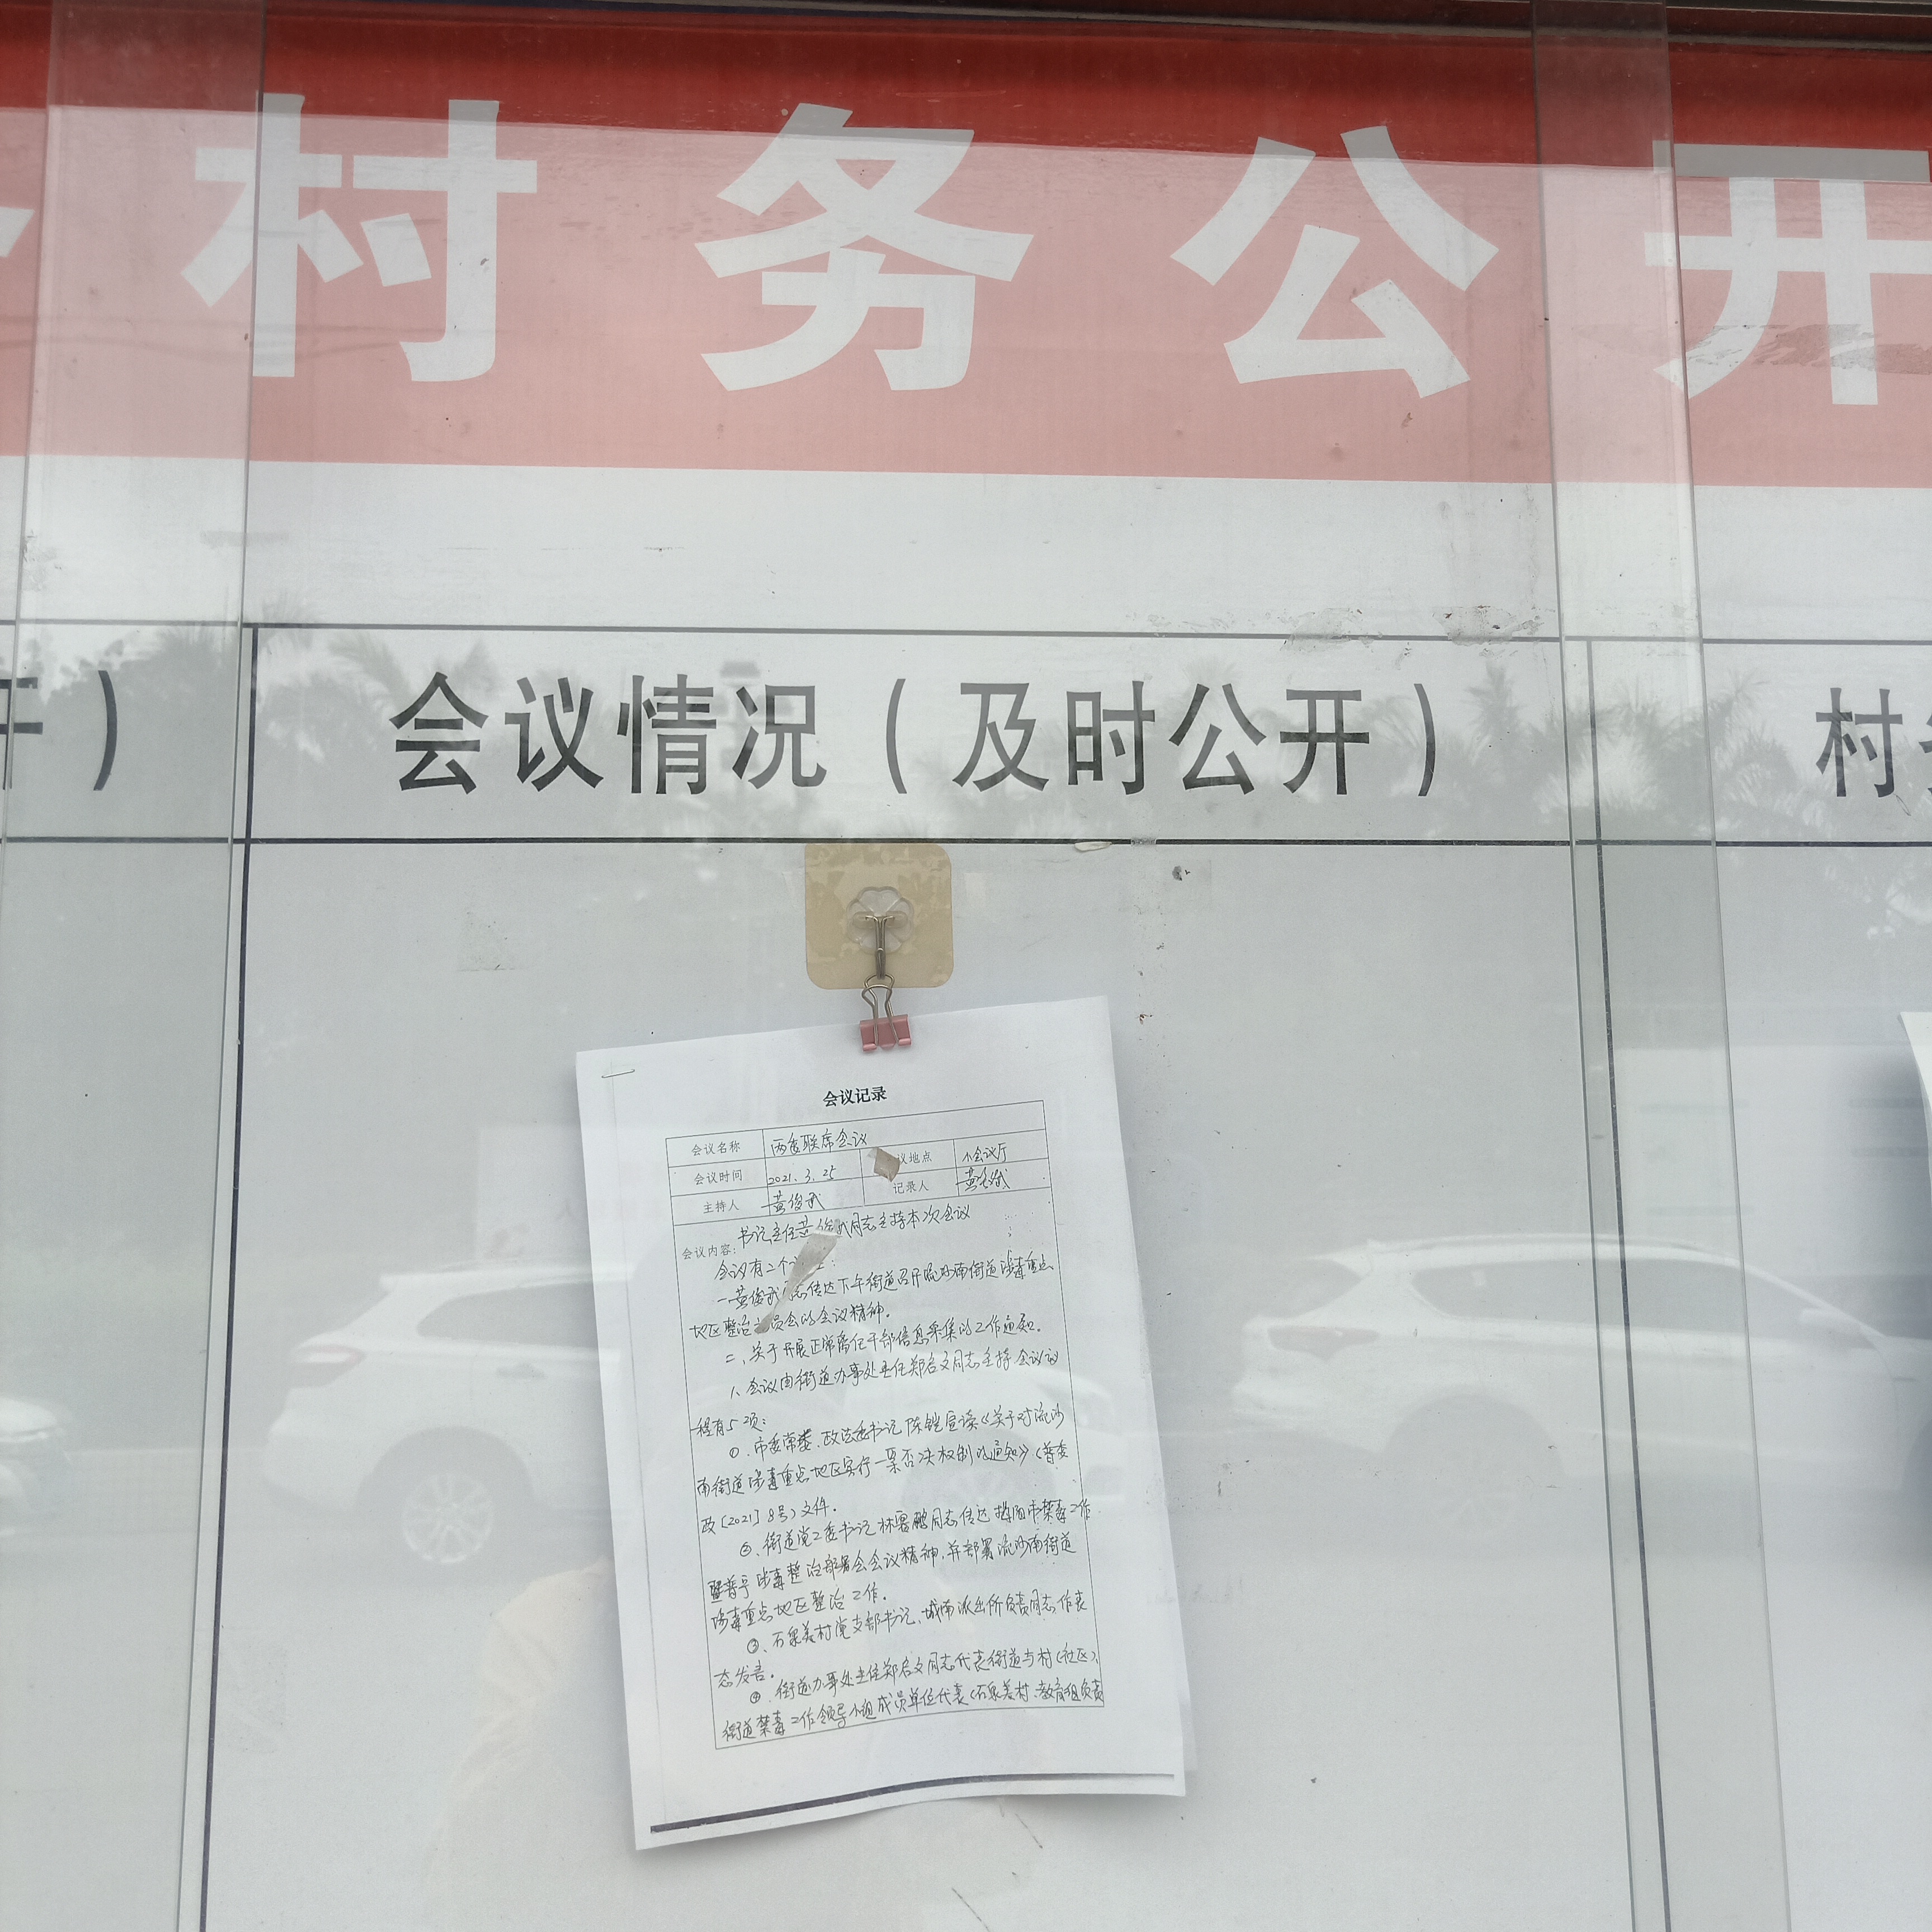 村务公开
开）
会议情况（及时公开）
村
会议记录
会议名称 两委联席会议
会议时间 2021.3.25 议地点 小会议厅
主持人 黄俊武 记录人 黄
会议内容：书记主任黄俊武同志主持本次会议
会议有二个
一黄俊武 志传达下午街道召开流沙南街道涉毒重点
地区整治 员会的会议精神。
二、关于开展正常离任干部信息采集的工作通知。
1、会议由街道办事处主任郑启文同志主持会议议
程有5项：
①、市委常委、政法委书记陈铠宣读《关于对流沙
南街道涉毒重点地区实行一票否决权制的通知》（普委
政〔2021〕8号）文件。
②、街道党工委书记林 鹏同志传达揭阳市禁毒工作
暨普宁涉毒整治部署会会议精神，并部署流沙南街道
涉毒重点地区整治工作。
③、石泉美村党支部书记、城南派出所负责同志作表
态发言。
④、街道办事处主任郑启文同志代表街道与村（社区）、
街道禁毒工作领导小组成员单位代表（石泉美村、教育组负责